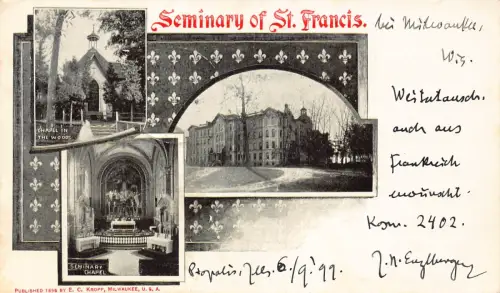 Seminary of St. Francis.
bei Milwaukee,
Wis.
Weitertausch
auch aus
Frankreich
erwünscht.
Korn. 2402.
J. N. Enzlberger
CHAPEL IN
THE WOODS
SEMINARY
CHAPEL
Piopolis, Ills. 6/9! 99.
PUBLISHED 1898 BY E. C. KROPP, MILWAUKEE, U. S. A.